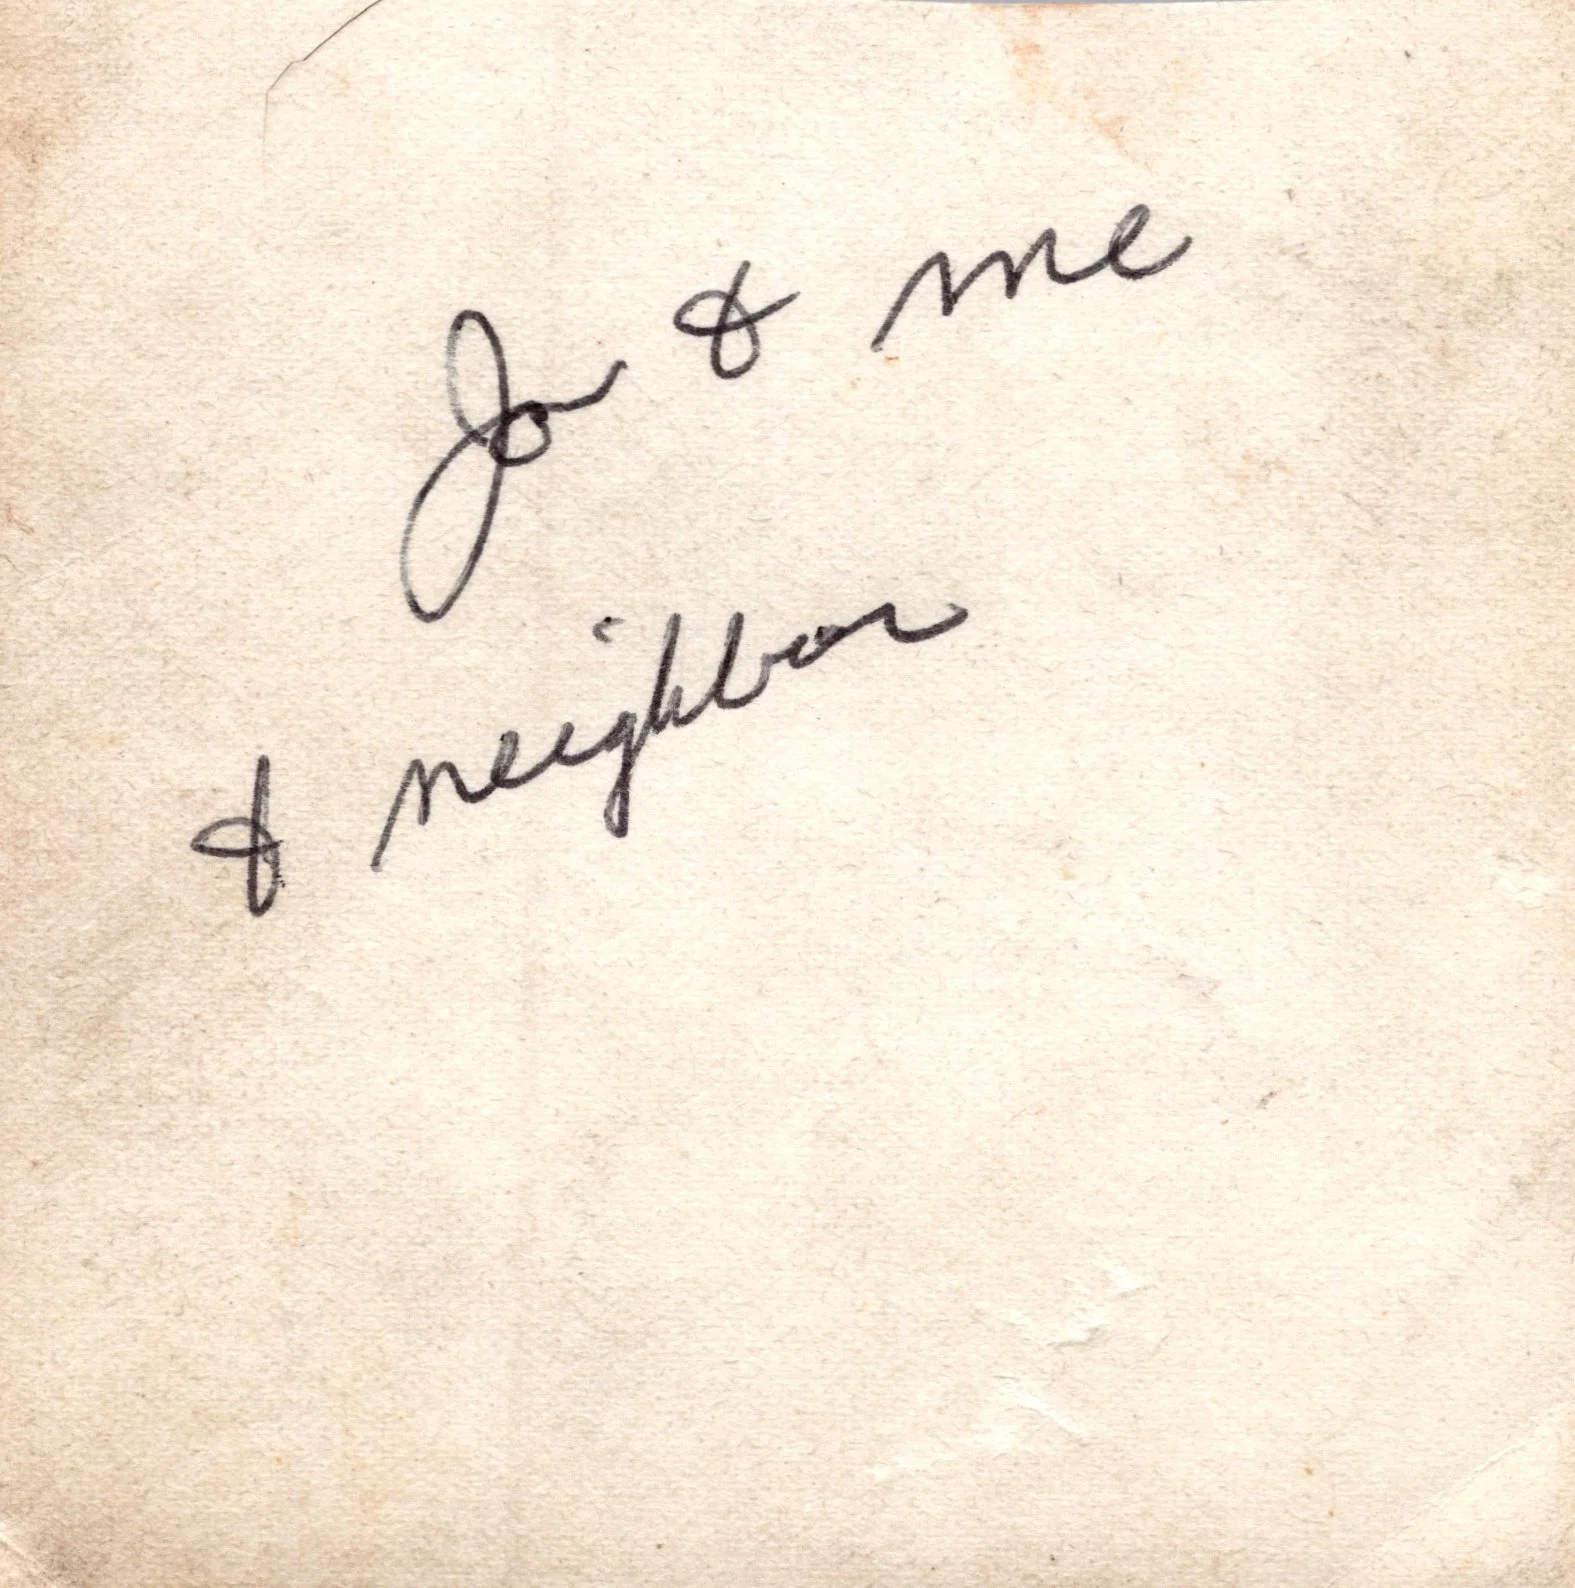 Jo & me
& neighbor